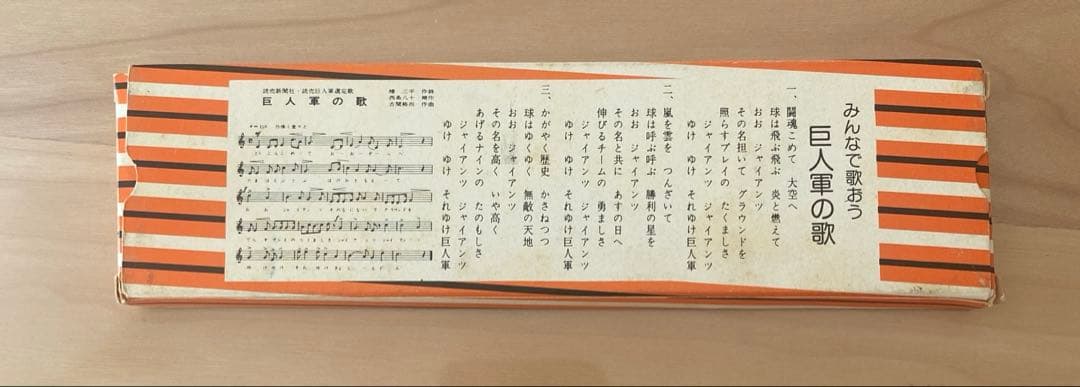 みんなで歌おう
巨人軍の歌
一、闘魂こめて 大空へ
球は飛ぶ飛ぶ 炎と燃えて
おお ジャイアンツ
その名担いて グラウンドを
照らすプレイの たくましさ
ジャイアンツ ジャイアンツ
ゆけ ゆけ それゆけ巨人軍
二、嵐を雲を つんざいて
球は呼ぶ呼ぶ 勝利の星を
おお ジャイアンツ
その名と共に あすの日へ
伸びるチームの 勇ましさ
ジャイアンツ ジャイアンツ
ゆけ ゆけ それゆけ巨人軍
三、かがやく歴史 かさねつつ
球はゆくゆく 無敵の天地
おお ジャイアンツ
その名を高く いや高く
あげるナインの たのもしさ
ジャイアンツ ジャイアンツ
ゆけ ゆけ それゆけ巨人軍
読売新聞社・読売巨人軍選定歌
巨人軍の歌
椿 三平 作詩
西條八十 補作
古関裕而 作曲